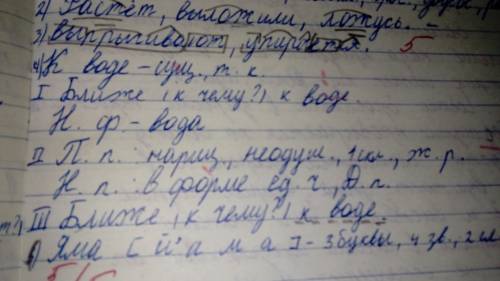 2) Растёт, выложили, ложусь. -
3) Выпрыгивают, упирается. 5
4) К воде - сущ., т. к.
I Ближе (к чему?) к воде.
Н. ф. - вода
II П. п.: нариц., неодуш., 1 скл., ж. р.
Н. п.: в форме ед. ч., Д. п.
III Ближе (к чему?) к воде
Яма [й' а м а] - 3 буквы, 4 зв., 2 сл
5/5